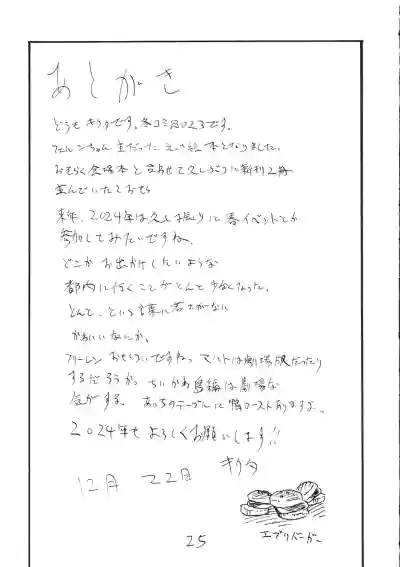 あとがき
どうも キクタです。冬コミ2023です。
フェルンちゃんまだった えっち絵本となりました。
おそらく会場本と合わせて久しぶりに新刊2冊
並んでいたとおもう
来年、2024年は久し振りに春イベントとか
参加してみたいですね。
どこか お出かけしたいような
都内に行くことがとんと少なくなった。
とんと、という言葉に
かわいいなにか。
フリーレン おもしろいですねっ 劇場版だったり
するだろうか ちいかわ島編は劇場な
気がする。 あっちのテーブルに鴨ローストありますよ。
2024年も よろしくお願いします!!
キクタ
12月 22日
エブリバーガー
25